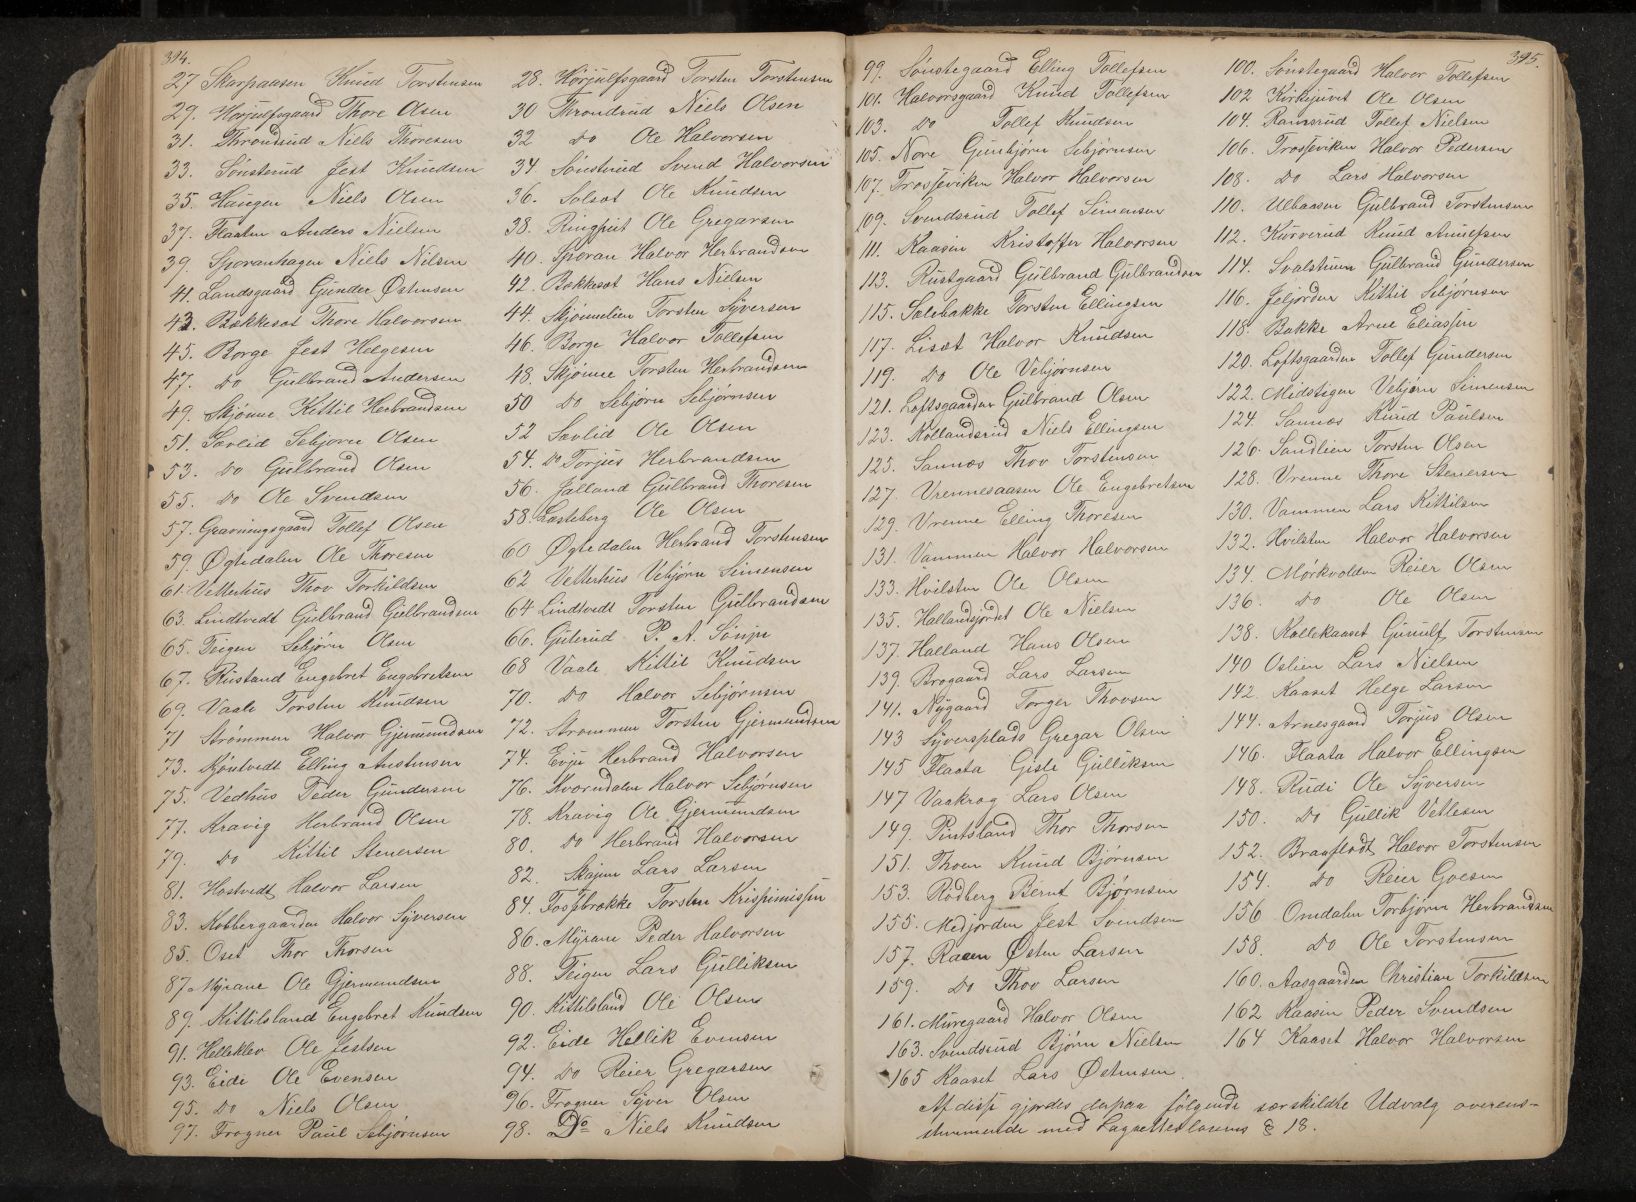 394.
27 Skarpaasen Knud Torstensen 28. Hørjulfsgaard Torsten Torstensen
29. Hørjulfsgaard Thore Olsen 30 Throndrud Niels Olsen
31. Throndrud Niels Thoresen 32 Do Ole Halvorsen
33. Sønsterud Jest Knudsen 34 Sønsterud Svend Halvorsen
35. Haugen Niels Olsen 36. Solsæt Ole Knudsen
37. Flaaten Anders Nielsen 38. Ringhut Ole Gregarsen
39. Sporanhagen Niels Nilsen 40. Sporan Halvor Herbrandsen
41. Landsgaard Gunder Østensen 42. Bækkesæt Hans Nielsen
43. Bækkesæt Thore Halvorsen 44. Skjønnelien Torsten Syversen
45. Borge Jest Helgesen 46. Borge Halvor Tollefsen
47. Do Gulbrand Andersen 48. Skjønne Torsten Herbrandsen
49. Skjønne Kittil Herbrandsen 50 Do Sebjørn Sebjørnsen
51. Sævlid Sebjørn Olsen 52 Sævlid Ole Olsen
53. Do Gulbrand Olsen 54. Do Torjus Herbrandsen
55. Do Ole Svendsen 56. Jalland Gulbrand Thoresen
57. Gravningsgaard Tollef Olsen 58. Lasteberg Ole Olsen
59. Øgtedalen Ole Thoresen 60 Øgtedalen Herbrand Torstensen
61. Vetterhus Thov Torkildsen 62 Vetterhus Vebjørn Simensen
63. Lindtvedt Gulbrand Gulbrandsen 64 Lindtvedt Torsten Gulbrandsen
65. Teigen Sebjørn Olsen 66. Guterud P. A. Sönju
67. Rustand Engebret Engebretsen 68 Vaale Kittil Knudsen
69. Vaale Torsten Knudsen 70. Do Halvor Sebjørnsen
71 Strømmen Halvor Gjermundsen 72. Strømmen Torsten Gjermundsen
73. Kjøntvedt Elling Austensen 74. Evju Herbrand Halvorsen
75. Vedhus Peder Gundersen 76. Kværndalen Halvor Sebjørnsen
77. Kravig Herbrand Olsen 78. Kravig Ole Gjermundsen
79. Do Kittil Stenersen 80. Do Herbrand Halvorsen
81. Hastvedt Halvor Larsen 82. Skajem Lars Larsen
83. Kobbergaarden Halvor Syversen 84. Fossebrække Torsten Krispinissen
85. Oset Thor Thorsen 86. Myrane Peder Halvorsen
87. Myrane Ole Gjermundsen 88. Teigen Lars Gulliksen
89. Kittilsland Engebret Knudsen 90. Kittilsland Ole Olsen
91. Helleklev Ole Jestsen 92. Eide Hellik Evensen
93. Eide Ole Evensen 94. Do Reier Gregarsen
95. Do Niels Olsen 96. Frogner Syver Olsen
97. Frogner Paul Sebjørnsen 98. Do Niels Knudsen
395.
99. Sønstegaard Elling Tollefsen 100. Sønstegaard Halvor Tollefsen
101. Halvorsgaard Knud Tollefsen 102 Kirkejuvet Ole Olsen
103. Do Tollef Knudsen 104. Ramsrud Tollef Nielsen
105. Nore Gunbjørn Sebjørnsen 106. Trosseviken Halvor Pedersen
107. Trosseviken Halvor Halvorsen 108. Do Lars Halvorsen
109. Svendsrud Tollef Simensen 110. Ulbaasen Gulbrand Torstensen
111. Kaasin Kristoffer Halvorsen 112. Kurverud Knud
113. Rustgaard Gulbrand Gulbrandsen 114. Svalstuen Gulbrand Gundersen
115. Salebakke Torsten Ellingsen 116. Jeljorden Kittil Sebjørnsen
117. Lisæt Halvor Knudsen 118. Bakke Arne Eliassen
119. Do Ole Vebjørnsen 120. Loftsgaarden Tollef Gundersen
121. Loftsgaarden Gulbrand Olsen 122. Midstigen Vebjørn Simensen
123. Kollandsrud Niels Ellingsen 124. Sannæs Knud Paulsen
125. Sannæs Thov Torstensen 126. Sandlien Torsten Olsen
127. Vrennesaasen Ole Engebretsen 128. Vrenne Thore Stenersen
129. Vrenne Elling Thoresen 130. Vammen Lars Kittilsen
131. Vammen Halvor Halvorsen 132. Hvilsten Halvor Halvorsen
133. Hvilsten Ole Olsen 134. Mørkvolden Reier Olsen
135. Hallandsjordet Ole Nielsen 136. Do Ole Olsen
137. Halland Hans Olsen 138. Kallekaaset Gunulf Torstensen
139. Brogaard Lars Larsen 140 Oslien Lars Nielsen
141. Nygaard Torger Thovsen 142. Kaaset Helge Larsen
143 Syversplads Gregar Olsen 144. Arnesgaard Torjus Olsen
145 Flaata Gisle Gulliksen 146. Flaata Halvor Ellingsen
147 Vaakrog Lars Olsen 148. Rudi Ole Syversen
149. Pintsland Thor Thorsen 150. Do Gullik Vetlesen
151. Thoen Knud Bjørnsen 152. Braaflodt Halvor Torstensen
153. Rødberg Bernt Bjørnsen 154. Do Reier Goesen
155. Medjorden Jest Svendsen 156 Omdalen Torbjørn Herbrandsen
157. Raaen Østen Larsen 158. Do Ole Torstensen
159. Do Thov Larsen 160. Aasgaarden Christian Torkildsen
161. Muregaard Halvor Olsen 162 Kaasin Peder Svendsen
163. Svendsrud Bjørn Nielsen 164 Kaaset Halvor Halvorsen
165 Kaaset Lars Østensen.
Af disse gjordes derpaa følgende særskildte Udvalg overens-
stemmende med Lagrettelovens § 18.